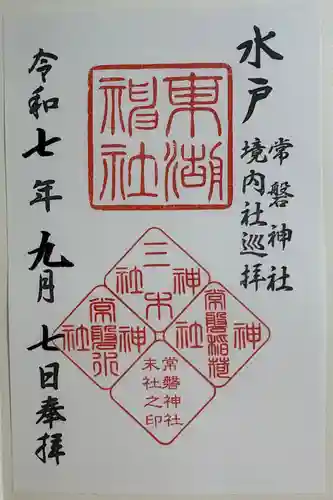 水戸
常磐神社
境内社巡拝
東湖
神社
三木
神社
常磐稲荷
神社
常磐水
神社
常磐神社
末社之印
令和七年九月七日奉拝